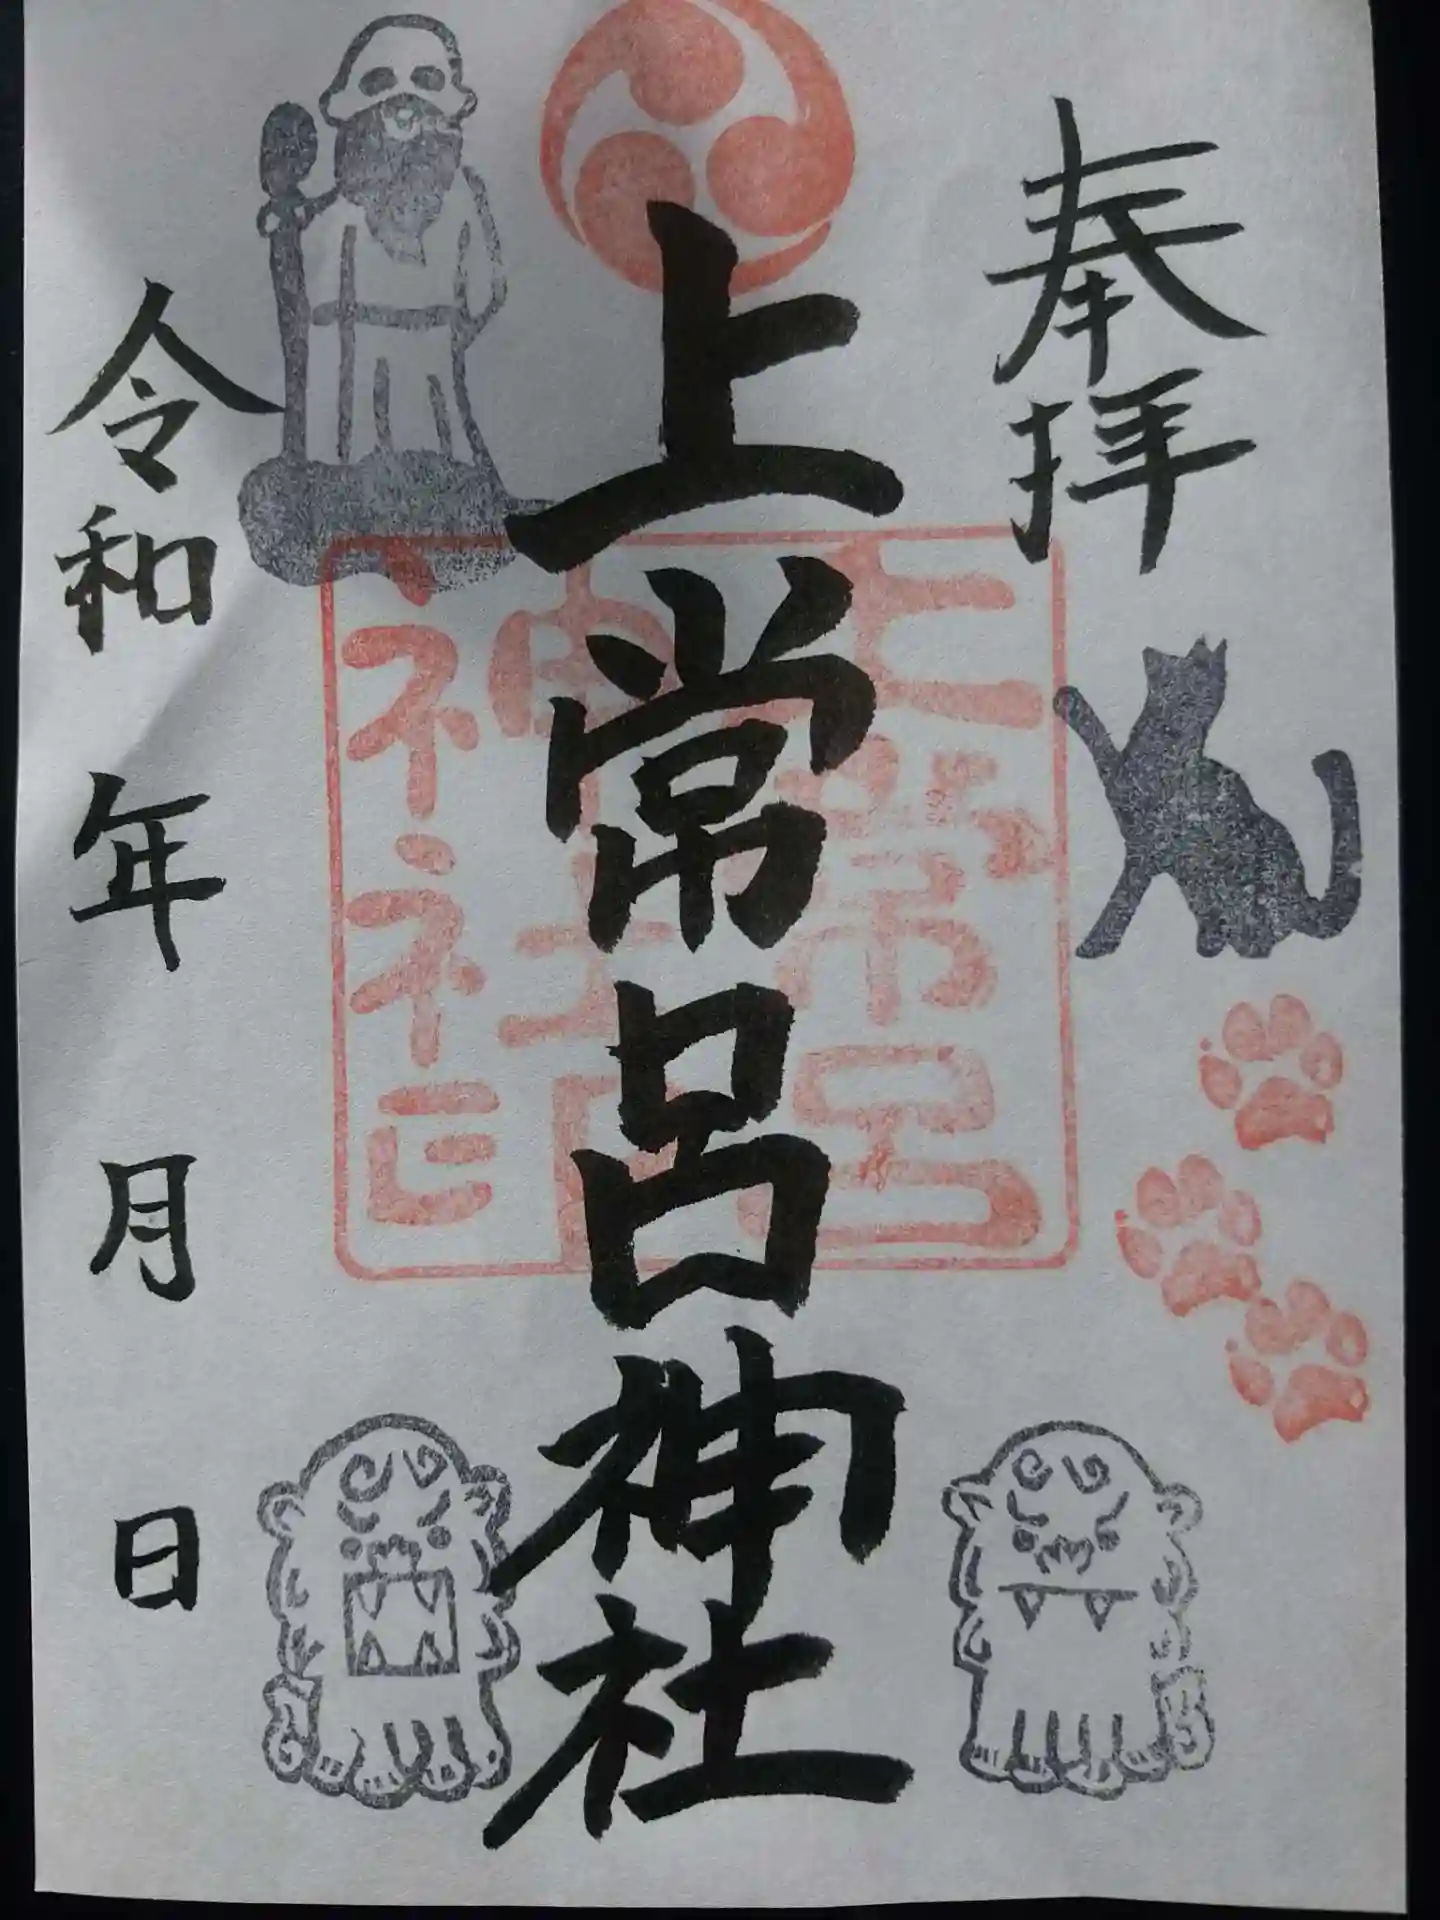 奉拝
上常呂神社
上常呂
神社
令和 年 月 日